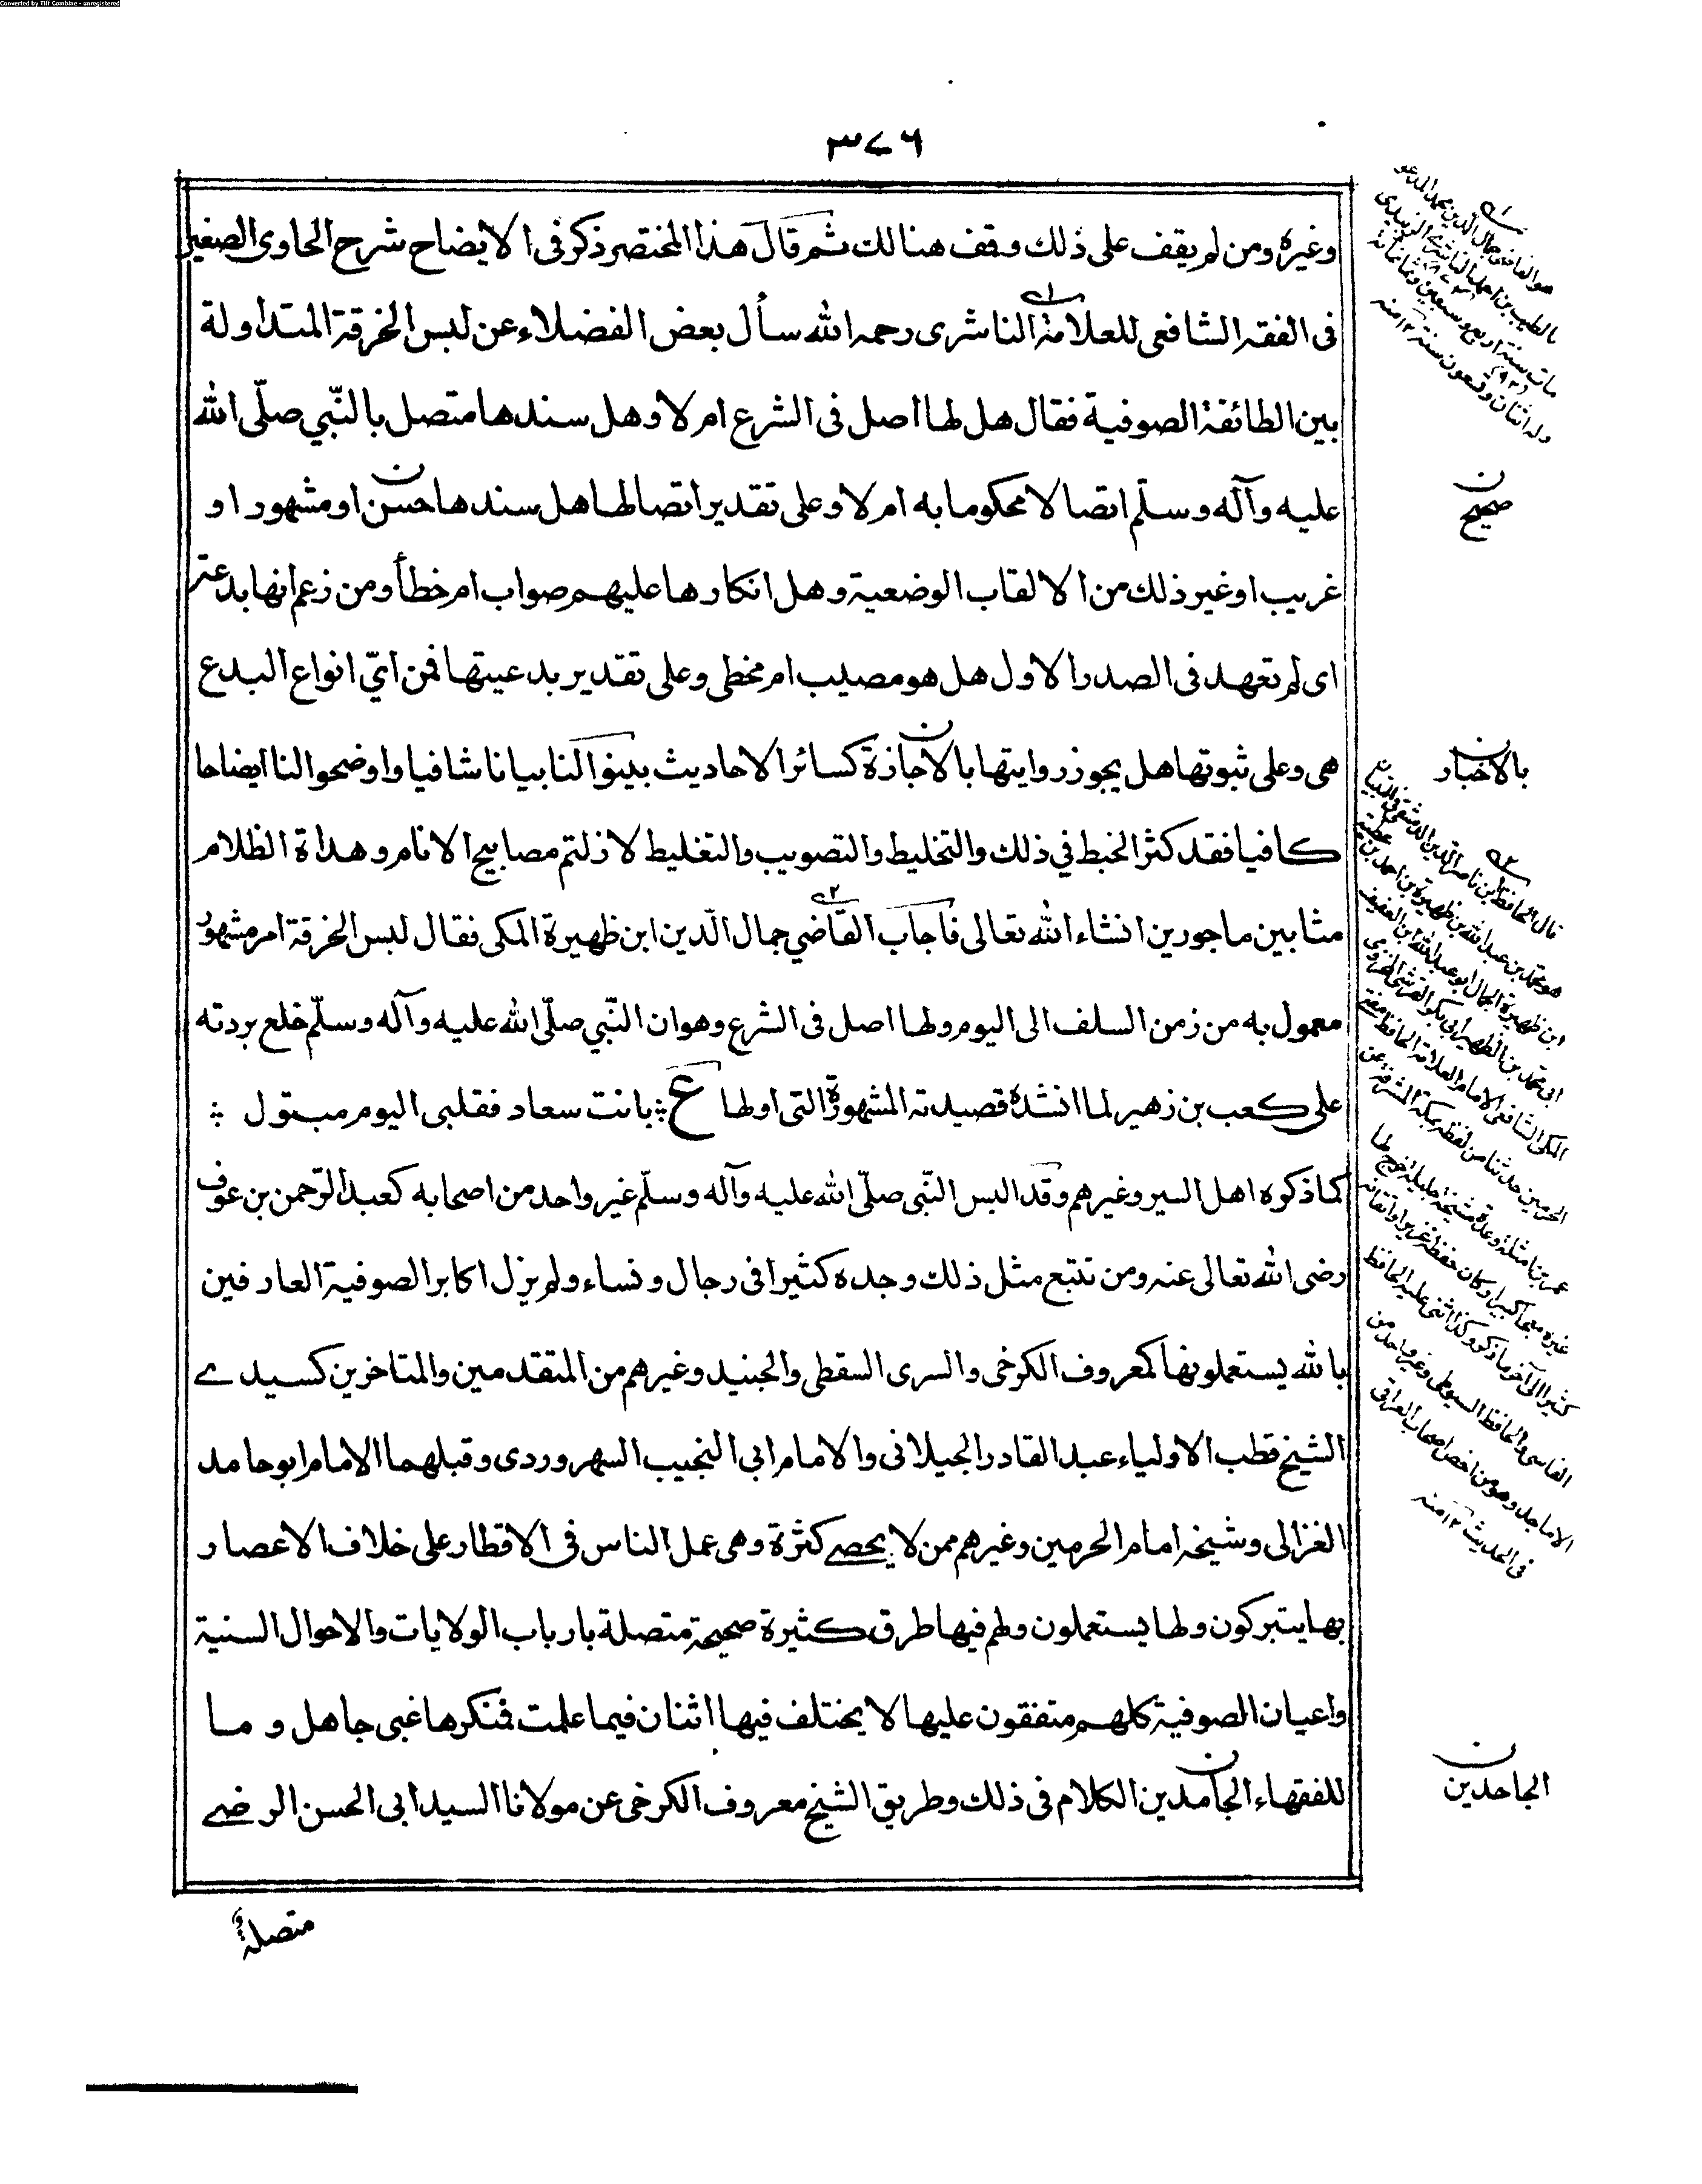 Converted by Tiff Combine - unregistered
٣٧٦
وغيره ومن لم يقف على ذلك وقف هنالك ثم قال هذا المختصر ذكر فى الايضاح شرح الحاوى الصغير
فى الفقه الشافعى للعلامة الناشرى رحمه الله سأل بعض الفضلاء عن لبس الخرقة المتداولة
بين الطائفة الصوفية فقال هل لها اصل فى الشرع ام لا وهل سندها متصل بالنّبي صلّى الله
عليه وآله وسلّم اتصالا محكوما به ام لا وعلى تقدير اتصالها هل سندها حسن او مشهور او
غريب او غير ذلك من الالقاب الوضعية وهل انكارها عليهم صواب ام خطأ ومن زعم انها بدعة
اى لم تعهد فى الصدر الاول هل هو مصيب ام مخطى وعلى تقدير بدعيتها فمن ايّ انواع البدع
هى وعلى ثبوتها هل يجوز روايتها بالاجازة كسائر الاحاديث بينوا لنا بيانا شافيا واوضحوا لنا ايضاحا
كافيا فقد كثر الخبط في ذلك والتخليط والتصويب والتغليط لازلتم مصابيح الانام وهداة الظلام
مثابين ماجورين انشاء الله تعالى فاجاب القاضي جمال الدّين ابن ظهيرة المكى فقال لبس الخرقة امر مشهور
معمول به من زمن السلف الى اليوم ولها اصل فى الشرع وهو ان النّبي صلّى الله عليه وآله وسلّم خلع بردته
على كعب بن زهير لما انشده قصيدته المشهورة التى اولها ع بانت سعاد فقلبى اليوم مبتول
كما ذكره اهل السير وغيرهم وقد البس النّبى صلّى الله عليه وآله وسلّم غير واحد من اصحابه كعبد الرّحمن بن عوف
رضى الله تعالى عنه ومن تتبع مثل ذلك وجده كثيرا فى رجال ونساء ولم يزل اكابر الصوفية العارفين
بالله يستعملونها كمعروف الكرخى والسرى السقطى والجنيد وغيرهم من المتقدمين والمتاخرين كسيدے
الشيخ قطب الاولياء عبد القادر الجيلانى والامام ابي النجيب السهروردى وقبلهما الامام ابو حامد
الغزالى وشيخه امام الحرمين وغيرهم ممن لا يحصے كثرة وهى عمل الناس فى الاقطار على خلاف الاعصار
بها يتبركون ولها يستعملون ولهم فيها طرق كثيرة صحيحة متصلة بارباب الولايات والاحوال السنية
واعيان الصوفية كلهم متفقون عليها لا يختلف فيها اثنان فيما علمت فمنكرها غبى جاهل وما
للفقهاء الجامدين الكلام فى ذلك وطريق الشيخ معروف الكرخى عن مولانا السيد ابى الحسن الرضے
متصلة
هو القاضى جمال الدّين محمد المدعو
بالطيب بن احمد الناشرے الزبيدى
مات سنة اربع وسبعين وثمانمائة
وله اثنان وتسعون سنة ١٢ منه
ن
صحيح
ن
بالاخبار
قال الحافظ ابن ناصر الدين الدمشقى
هو محمد بن عبد الله بن ظهيرة بن احمد بن عطية
ابن ظهيرة الجمال ابو عبد الله ابن العفيف
ابى محمد بن الظهير ابى بكر القرشى المخزومى
المكى الشافعى الامام العلامة الحافظ مفتى
الحرمين حدثنا من لفظه بمكة المشرفة عن
غيره معجما كبيرا وكان حفظه غزيرا واتقانه
كثيرا الى آخر ما ذكر وكذا اثنى عليه الحافظ
الفاسى والحافظ السيوطى وغير واحد من
الاماجد وهو من اخص اصحاب العراقى
فى الحديث ١٢ منه
ن
الجاحدين